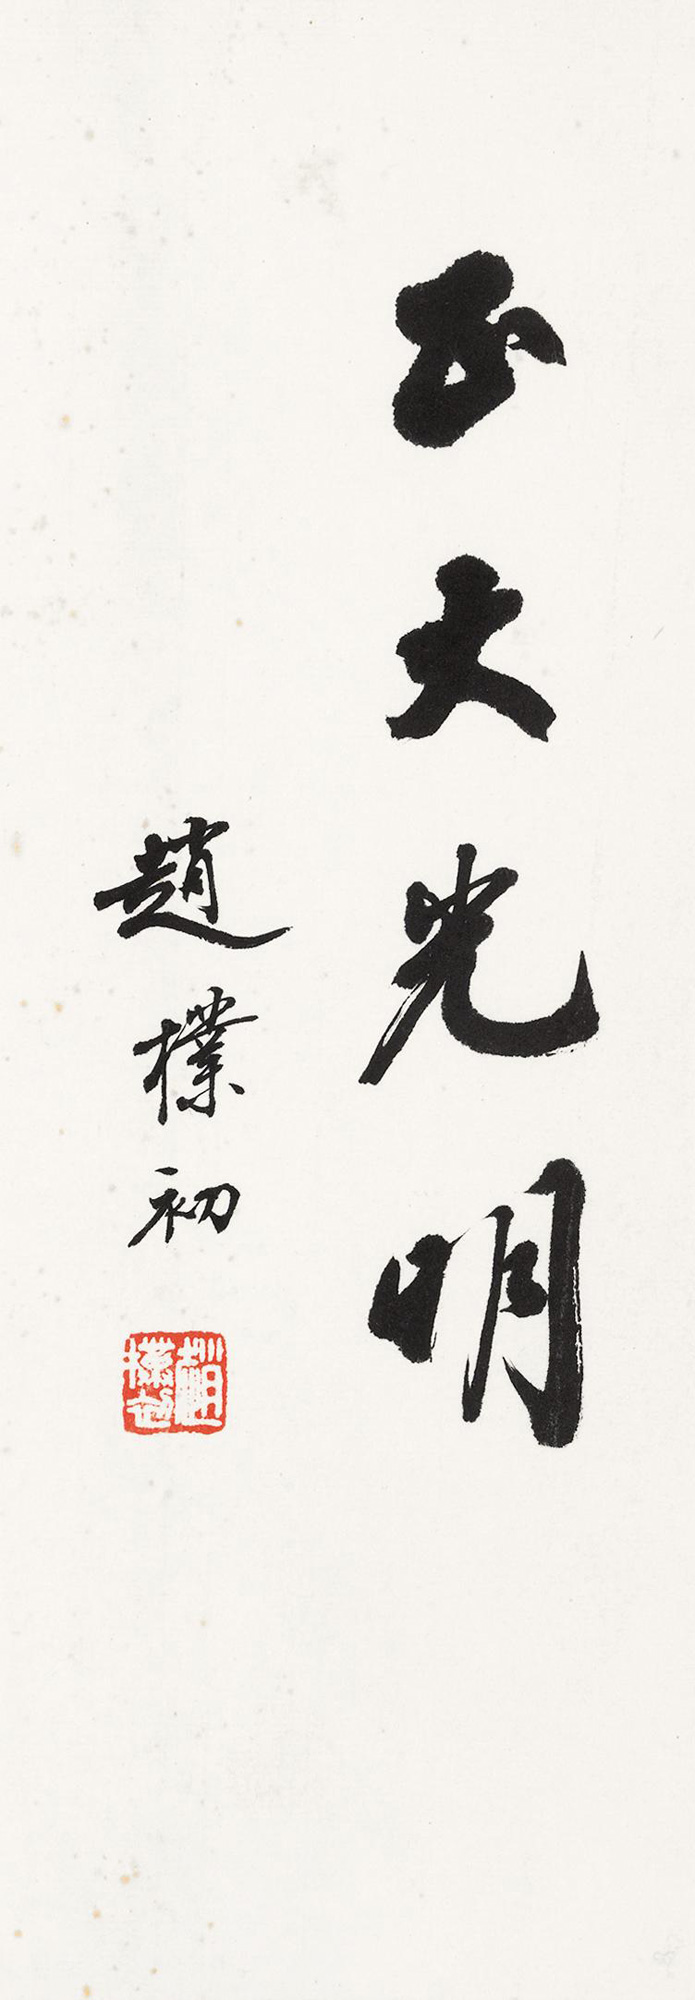 正大光明
趙樸初
趙樸初